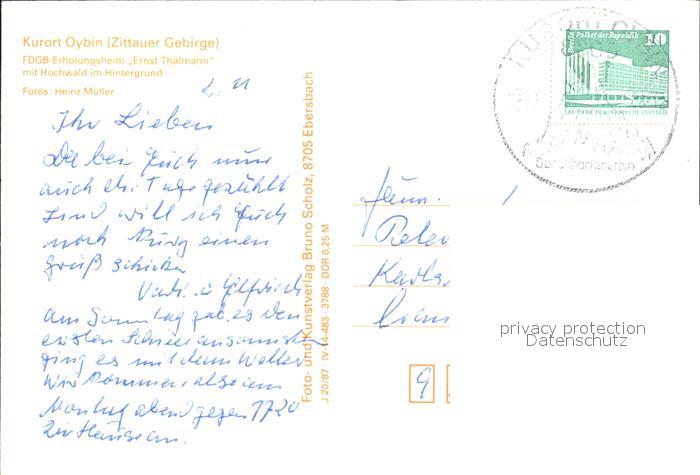 Kurort Oybin (Zittauer Gebirge)
FDGB-Erholungsheim „Ernst Thälmann"
mit Hochwald im Hintergrund
Fotos: Heinz Müller
Ihr Lieben
Da bei Euch nun
auch die Tage gezählt
sind will ich Euch
noch kurz einen
Gruß schicken
am Sonntag gab es den
ersten Schnee ansonsten
ging es mit dem Wetter
Wir kommen also am
Montag abend gegen 17 20
zu Hause an.
Foto- und Kunstverlag Bruno Scholz, 8705 Ebersbach
J 20/87 · IV-14-483 · 3788 · DDR 0,25 M
Fam.
Peter
9
Berlin Palast der Republik
10
DEUTSCHE DEMOKRATISCHE REPUBLIK
privacy protection
Datenschutz